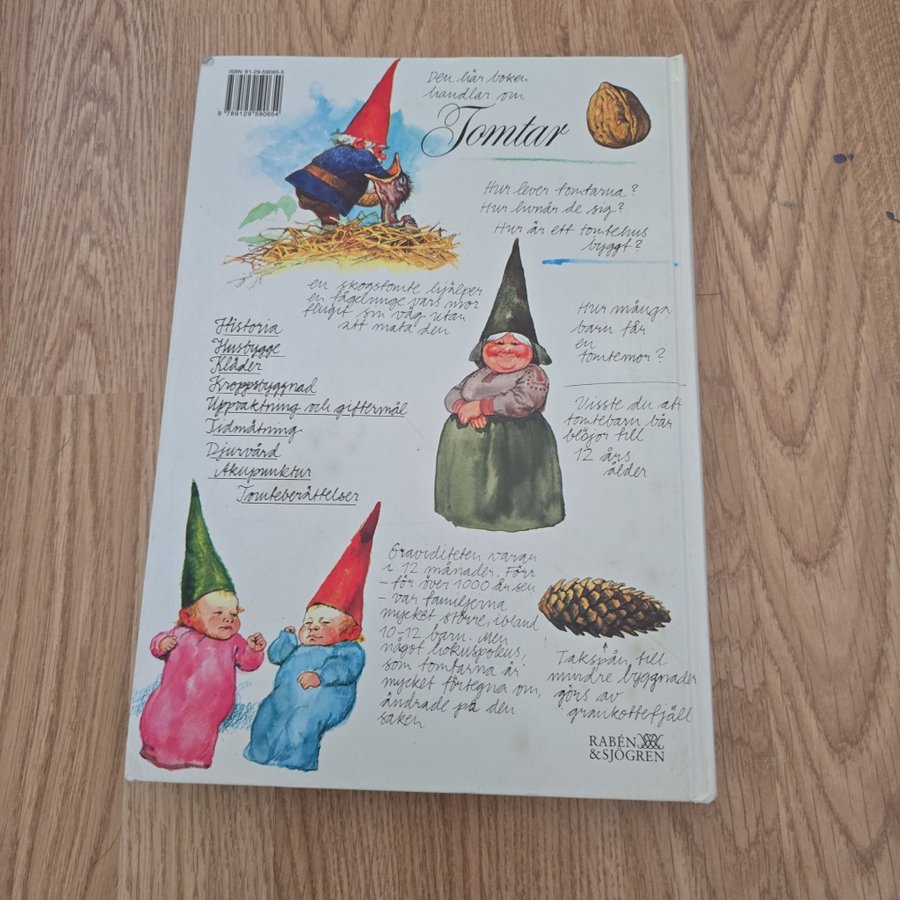 ISBN 91-29-59065-5
9 789129 590654
Den här boken
handlar om
Tomtar
Hur lever tomtarna?
Hur livnär de sig?
Hur är ett tomtehus
byggt?
en skogstomte hjälper
en fågelunge vars mor
flugit sin väg utan
att mata den
Hur många
barn får
en
tomtemor?
Historia
Husbygge
Kläder
Kroppsbyggnad
Uppvaktning och giftermål
Tidmätning
Djurvård
Akupunktur
Tomteberättelser
Visste du att
tomtebarn bär
blöjor till
12 års
ålder
Graviditeten varar
i 12 månader. Förr
- för över 1000 år sen
- var familjerna
mycket större, ibland
10-12 barn. Men
något hokuspokus,
som tomtarna är
mycket förtegna om,
ändrade på den
saken
Takspån till
mindre byggnader
görs av
grankottefjäll
RABÉN
& SJÖGREN